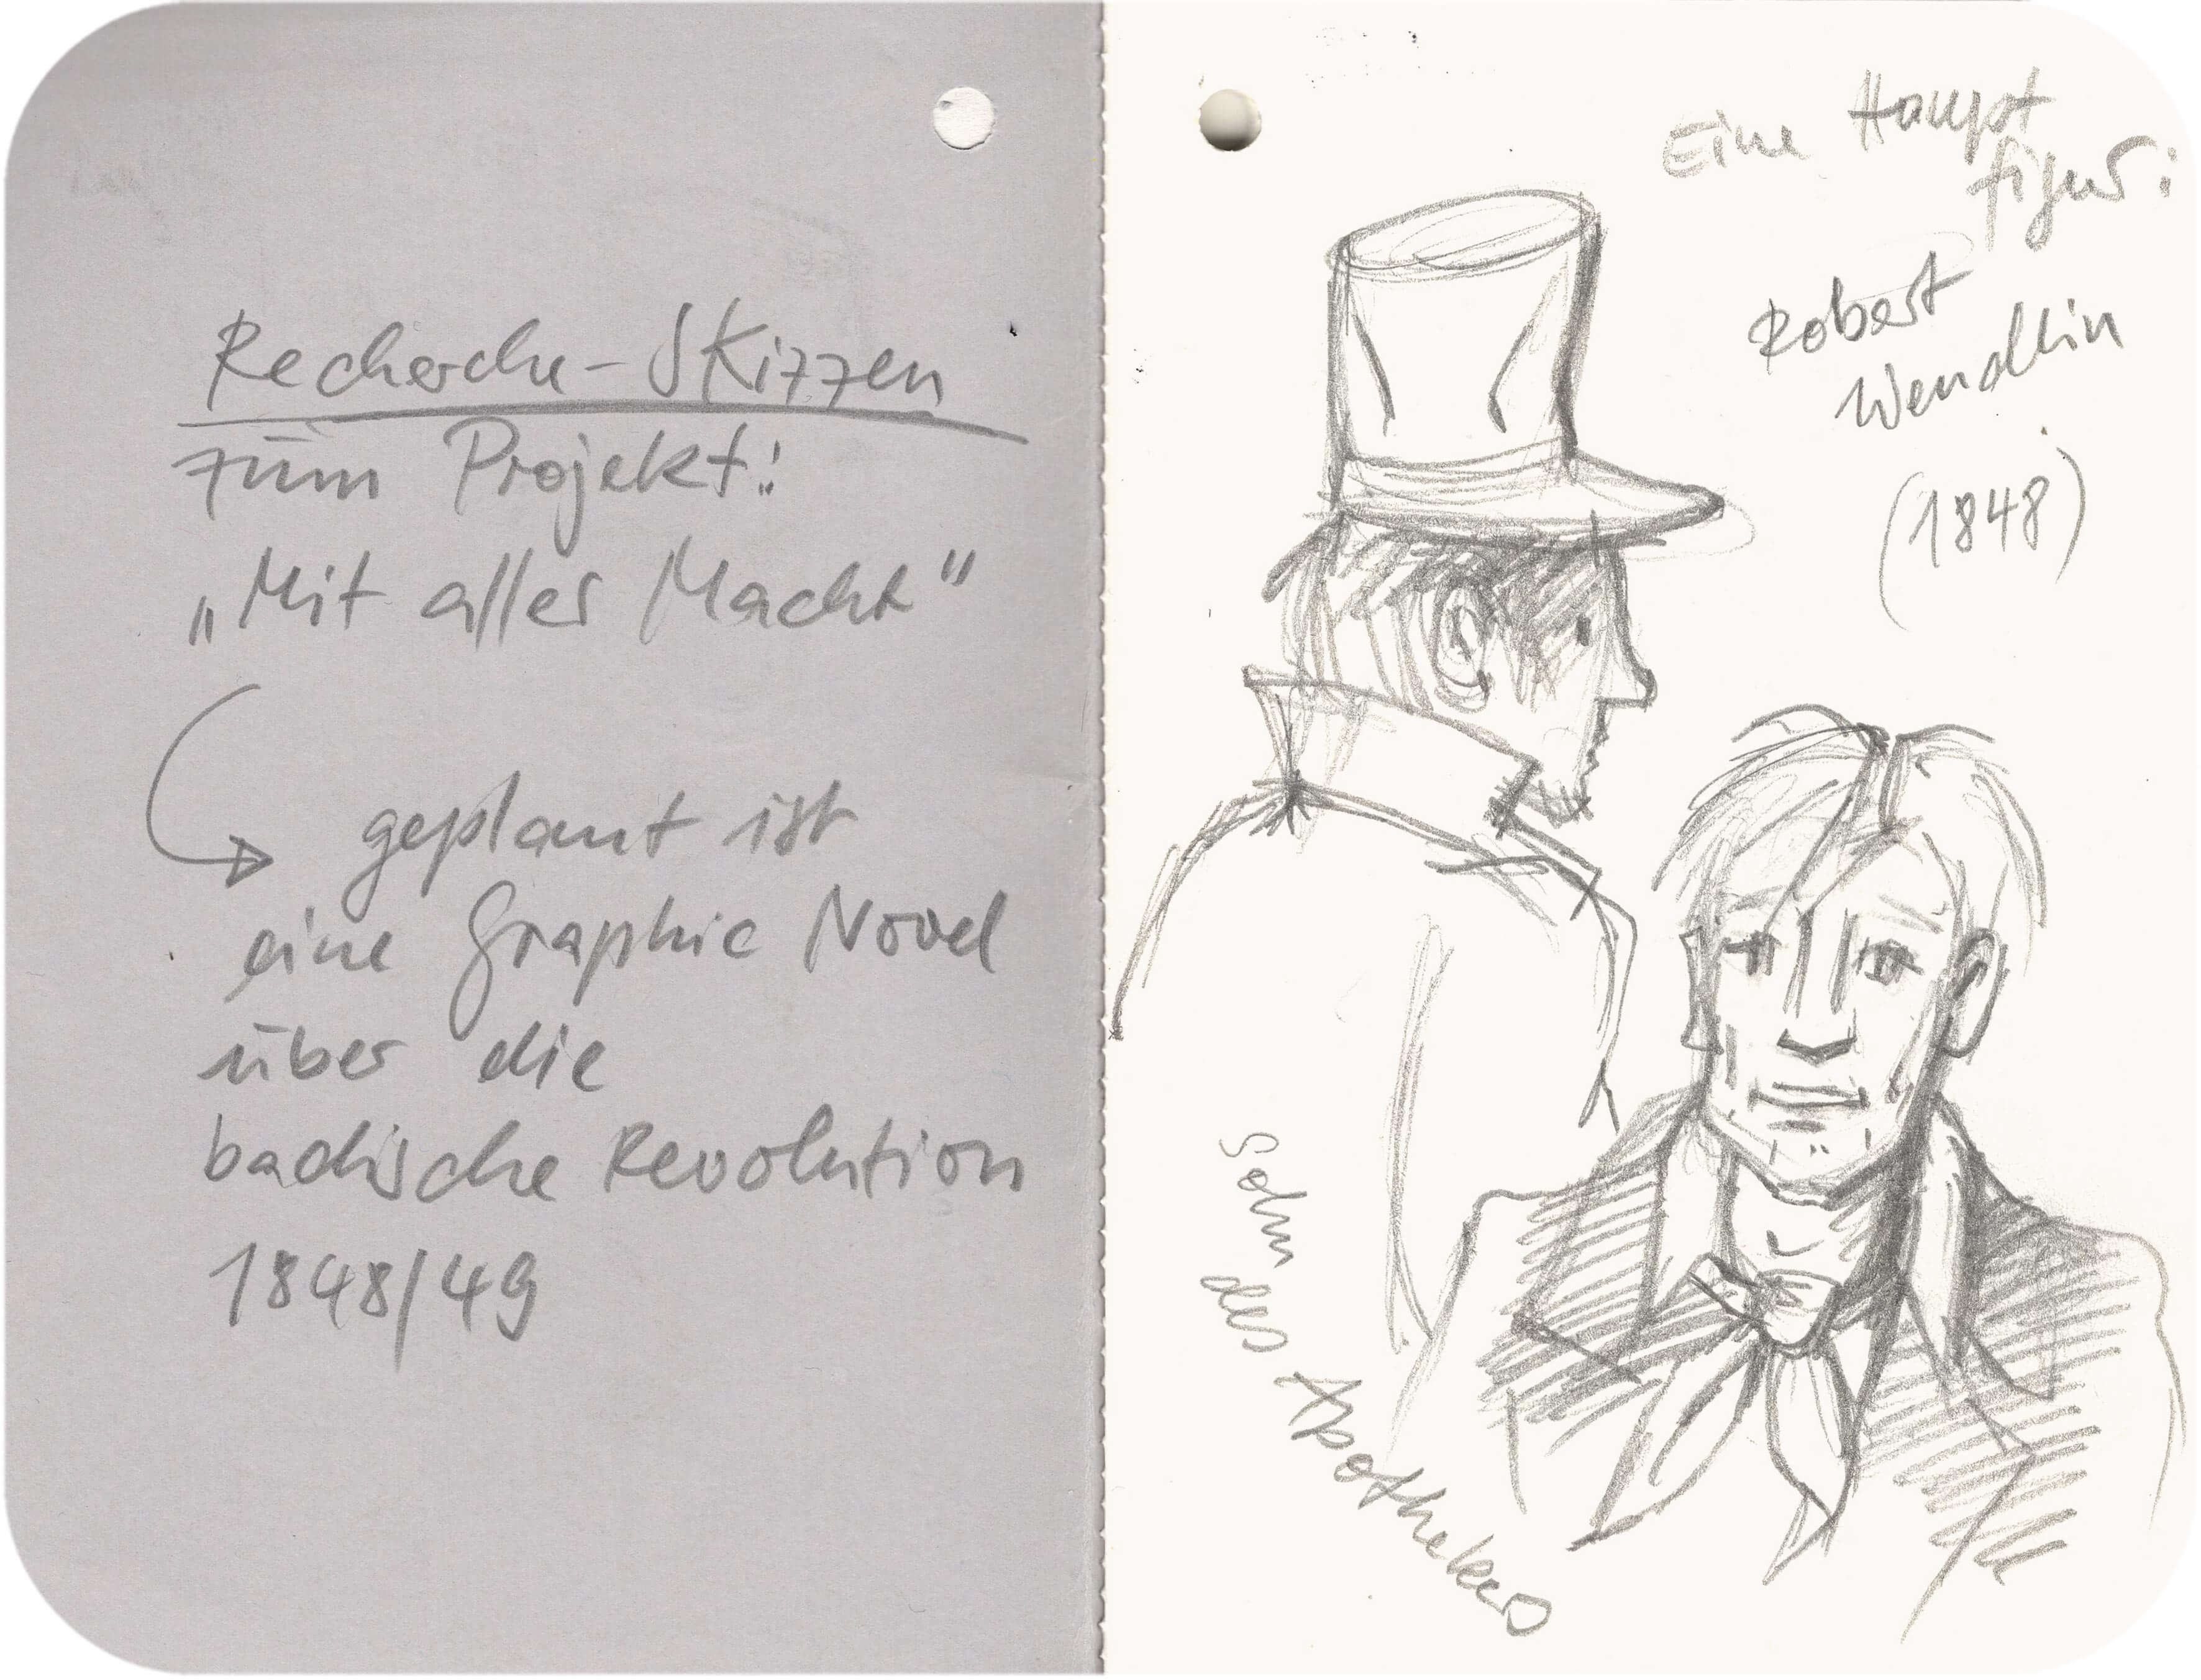 Recherche-Skizzen
zum Projekt:
„Mit aller Macht“
geplant ist
eine Graphic Novel
über die
badische Revolution
1848/49
Eine Haupt
figur:
Robert
Wendlin
(1848)
Sohn
des
Apothekers